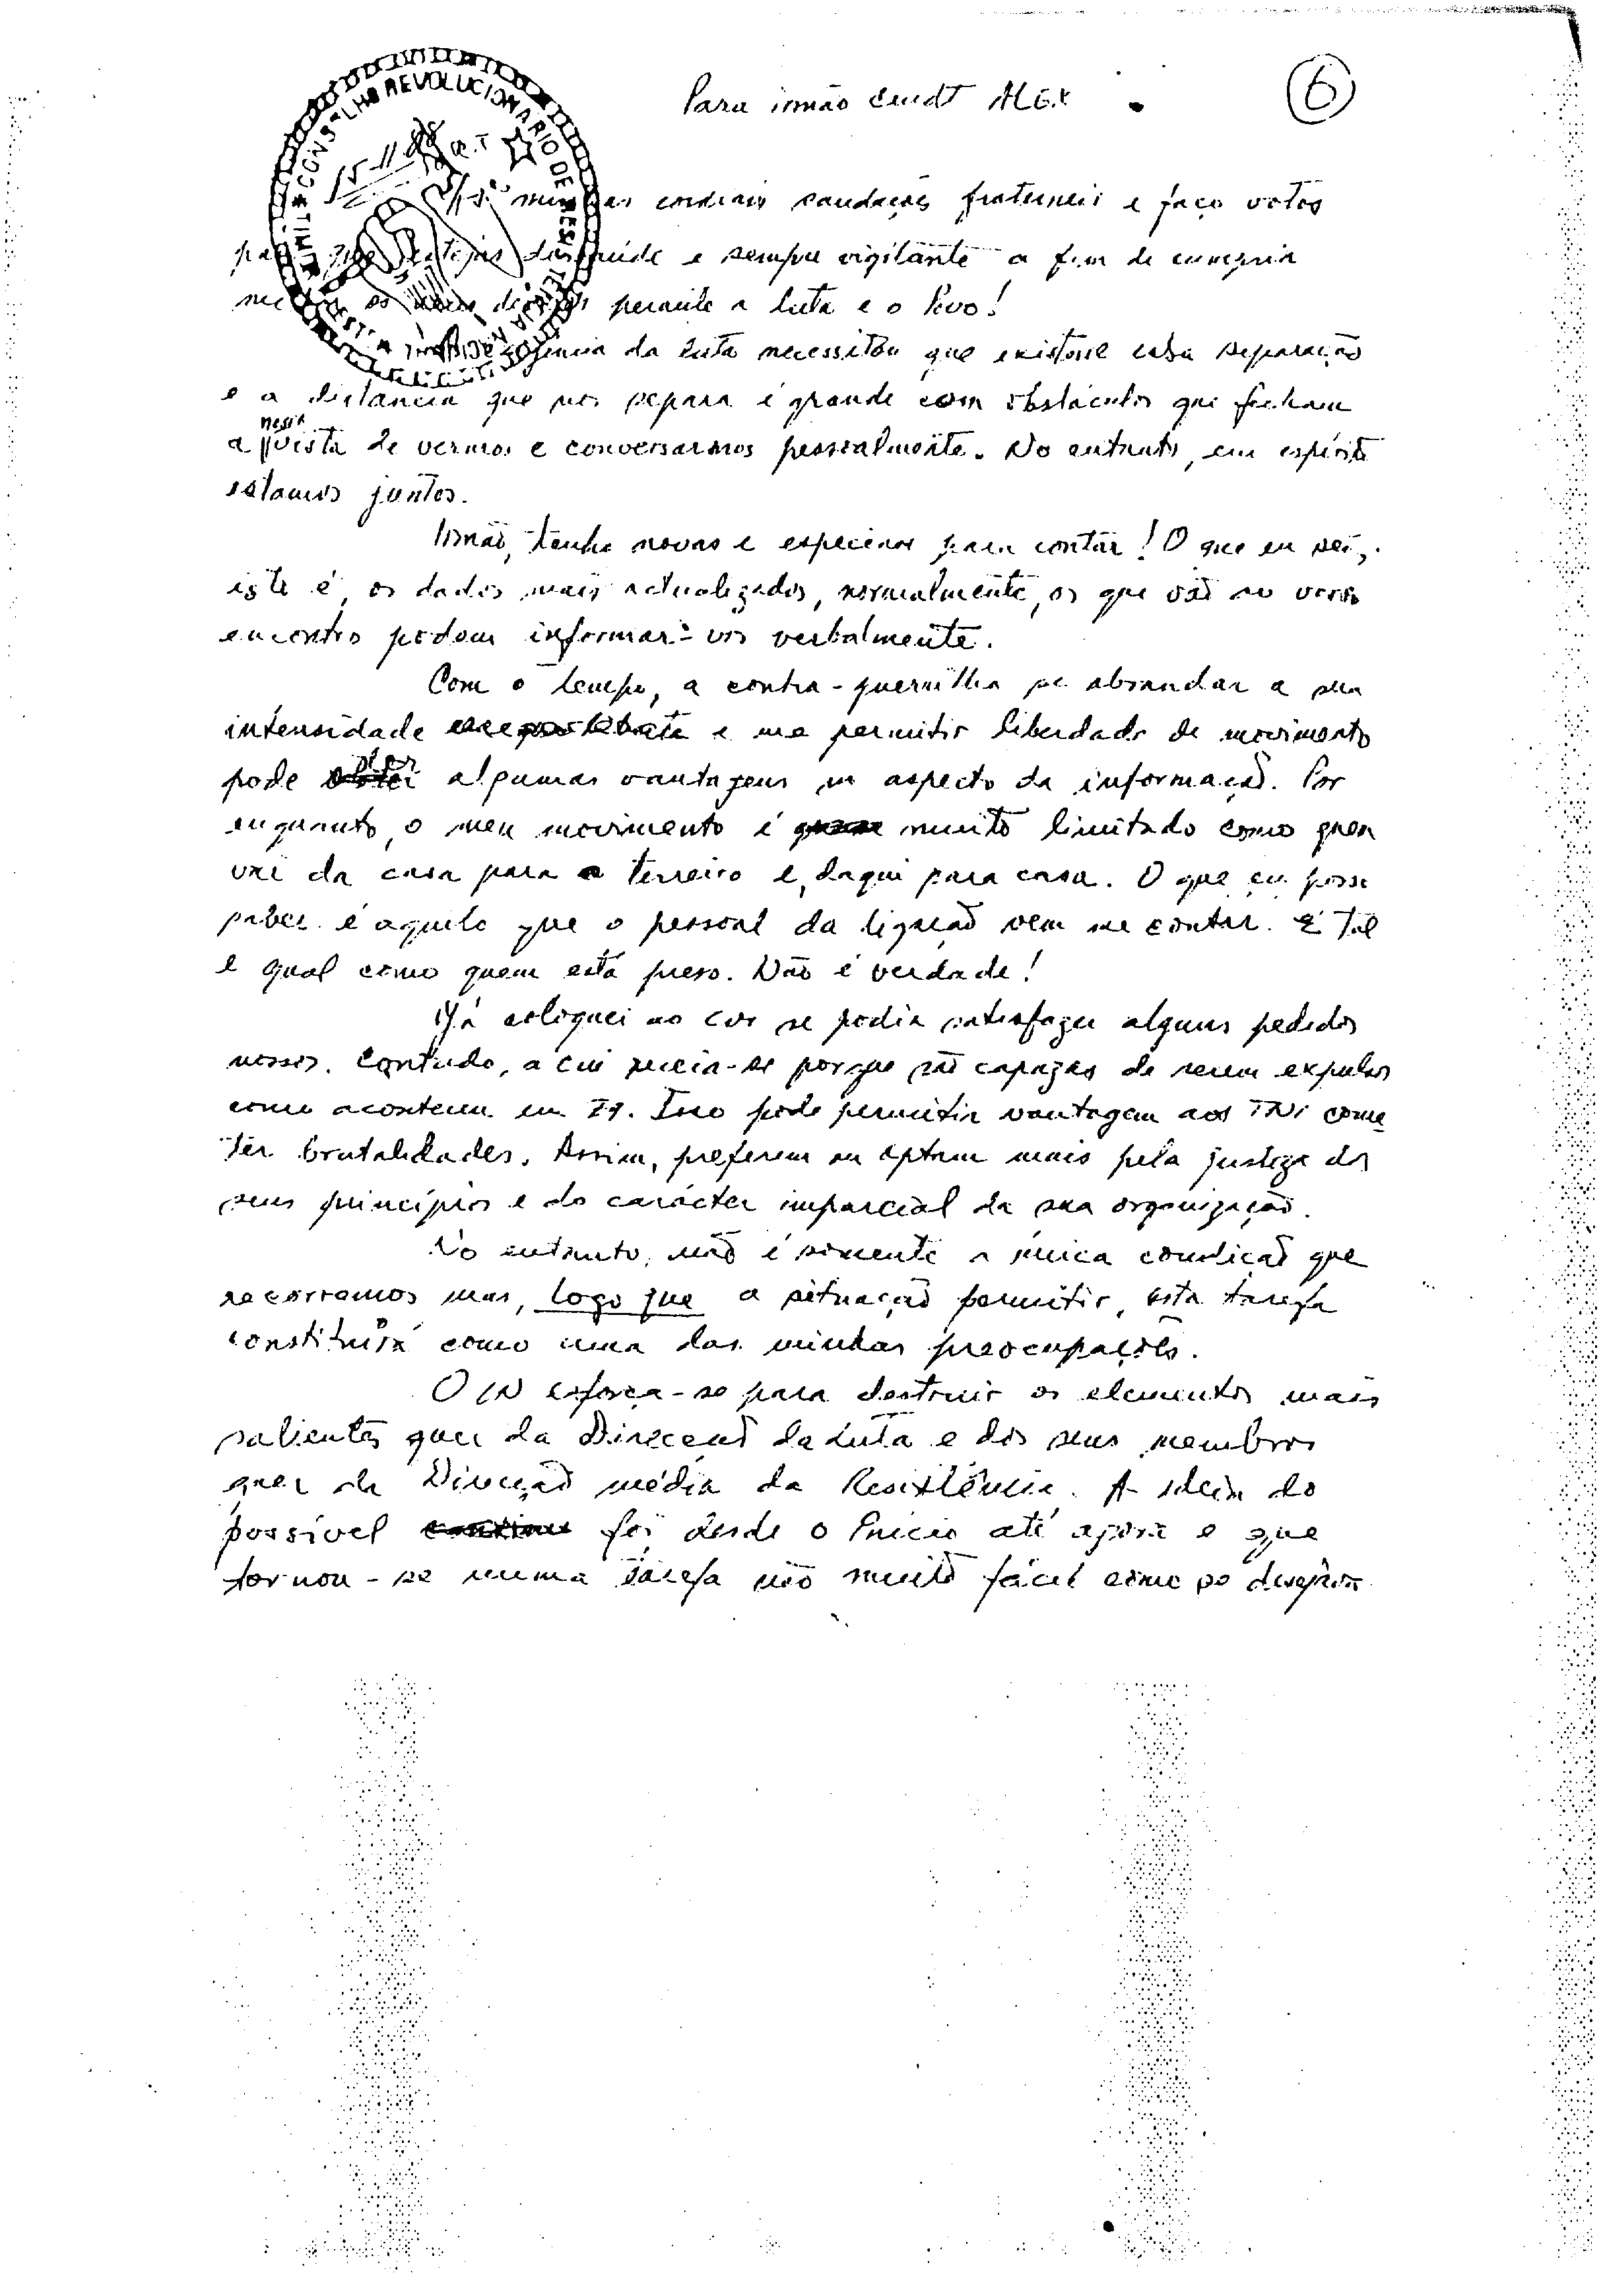 Para irmão Cmdt ALEX
6
CONSELHO REVOLUCIONARIO DE RES
15-11-
minhas cordiais saudações fraternais e faço votos
saúde e sempre vigilante a fim de cumprir
os perante a luta e o Povo!
da luta necessitou que existisse esta separação
e a distância que nos separa é grande com obstáculos que fecham
nossa
a vista de vermos e conversarmos pessoalmente. No entanto, em espírito
estamos juntos.
Irmão, tenho novas e especiais para contar! O que eu sei,
isto é, os dados mais actualizados, normalmente, os que vão ao vosso
encontro podem informar-vos verbalmente.
Com o tempo, a contra-guerrilha se abrandar a sua
intensidade e me permitir liberdade de movimento
pode obter algumas vantagens no aspecto da informação. Por
enquanto, o meu movimento é muito limitado como quem
vai da casa para o terreiro e, daqui para casa. O que eu posso
saber é aquilo que o pessoal da ligação vem me contar. É tal
e qual como quem está preso. Não é verdade!
Já coloquei ao se podia satisfazer alguns pedidos
nossos. Contudo, a receia-se porque são capazes de serem expulsos
como aconteceu em 79. Isso pode permitir vantagem aos TNI come
ter brutalidades. Assim, preferem ou optam mais pela justeza dos
seus princípios e do carácter imparcial da sua organização.
No entanto, não é somente a única condição que
recorramos mas, logo que a situação permitir, esta tarefa
constituirá como uma das minhas preocupações.
O IN esforça-se para destruir os elementos mais
salientes quer da Direcção da Luta e dos seus membros
quer da Direcção média da Resistência. A ideia do
possível foi desde o início até agora e que
tornou-se numa tarefa não muito fácil como se